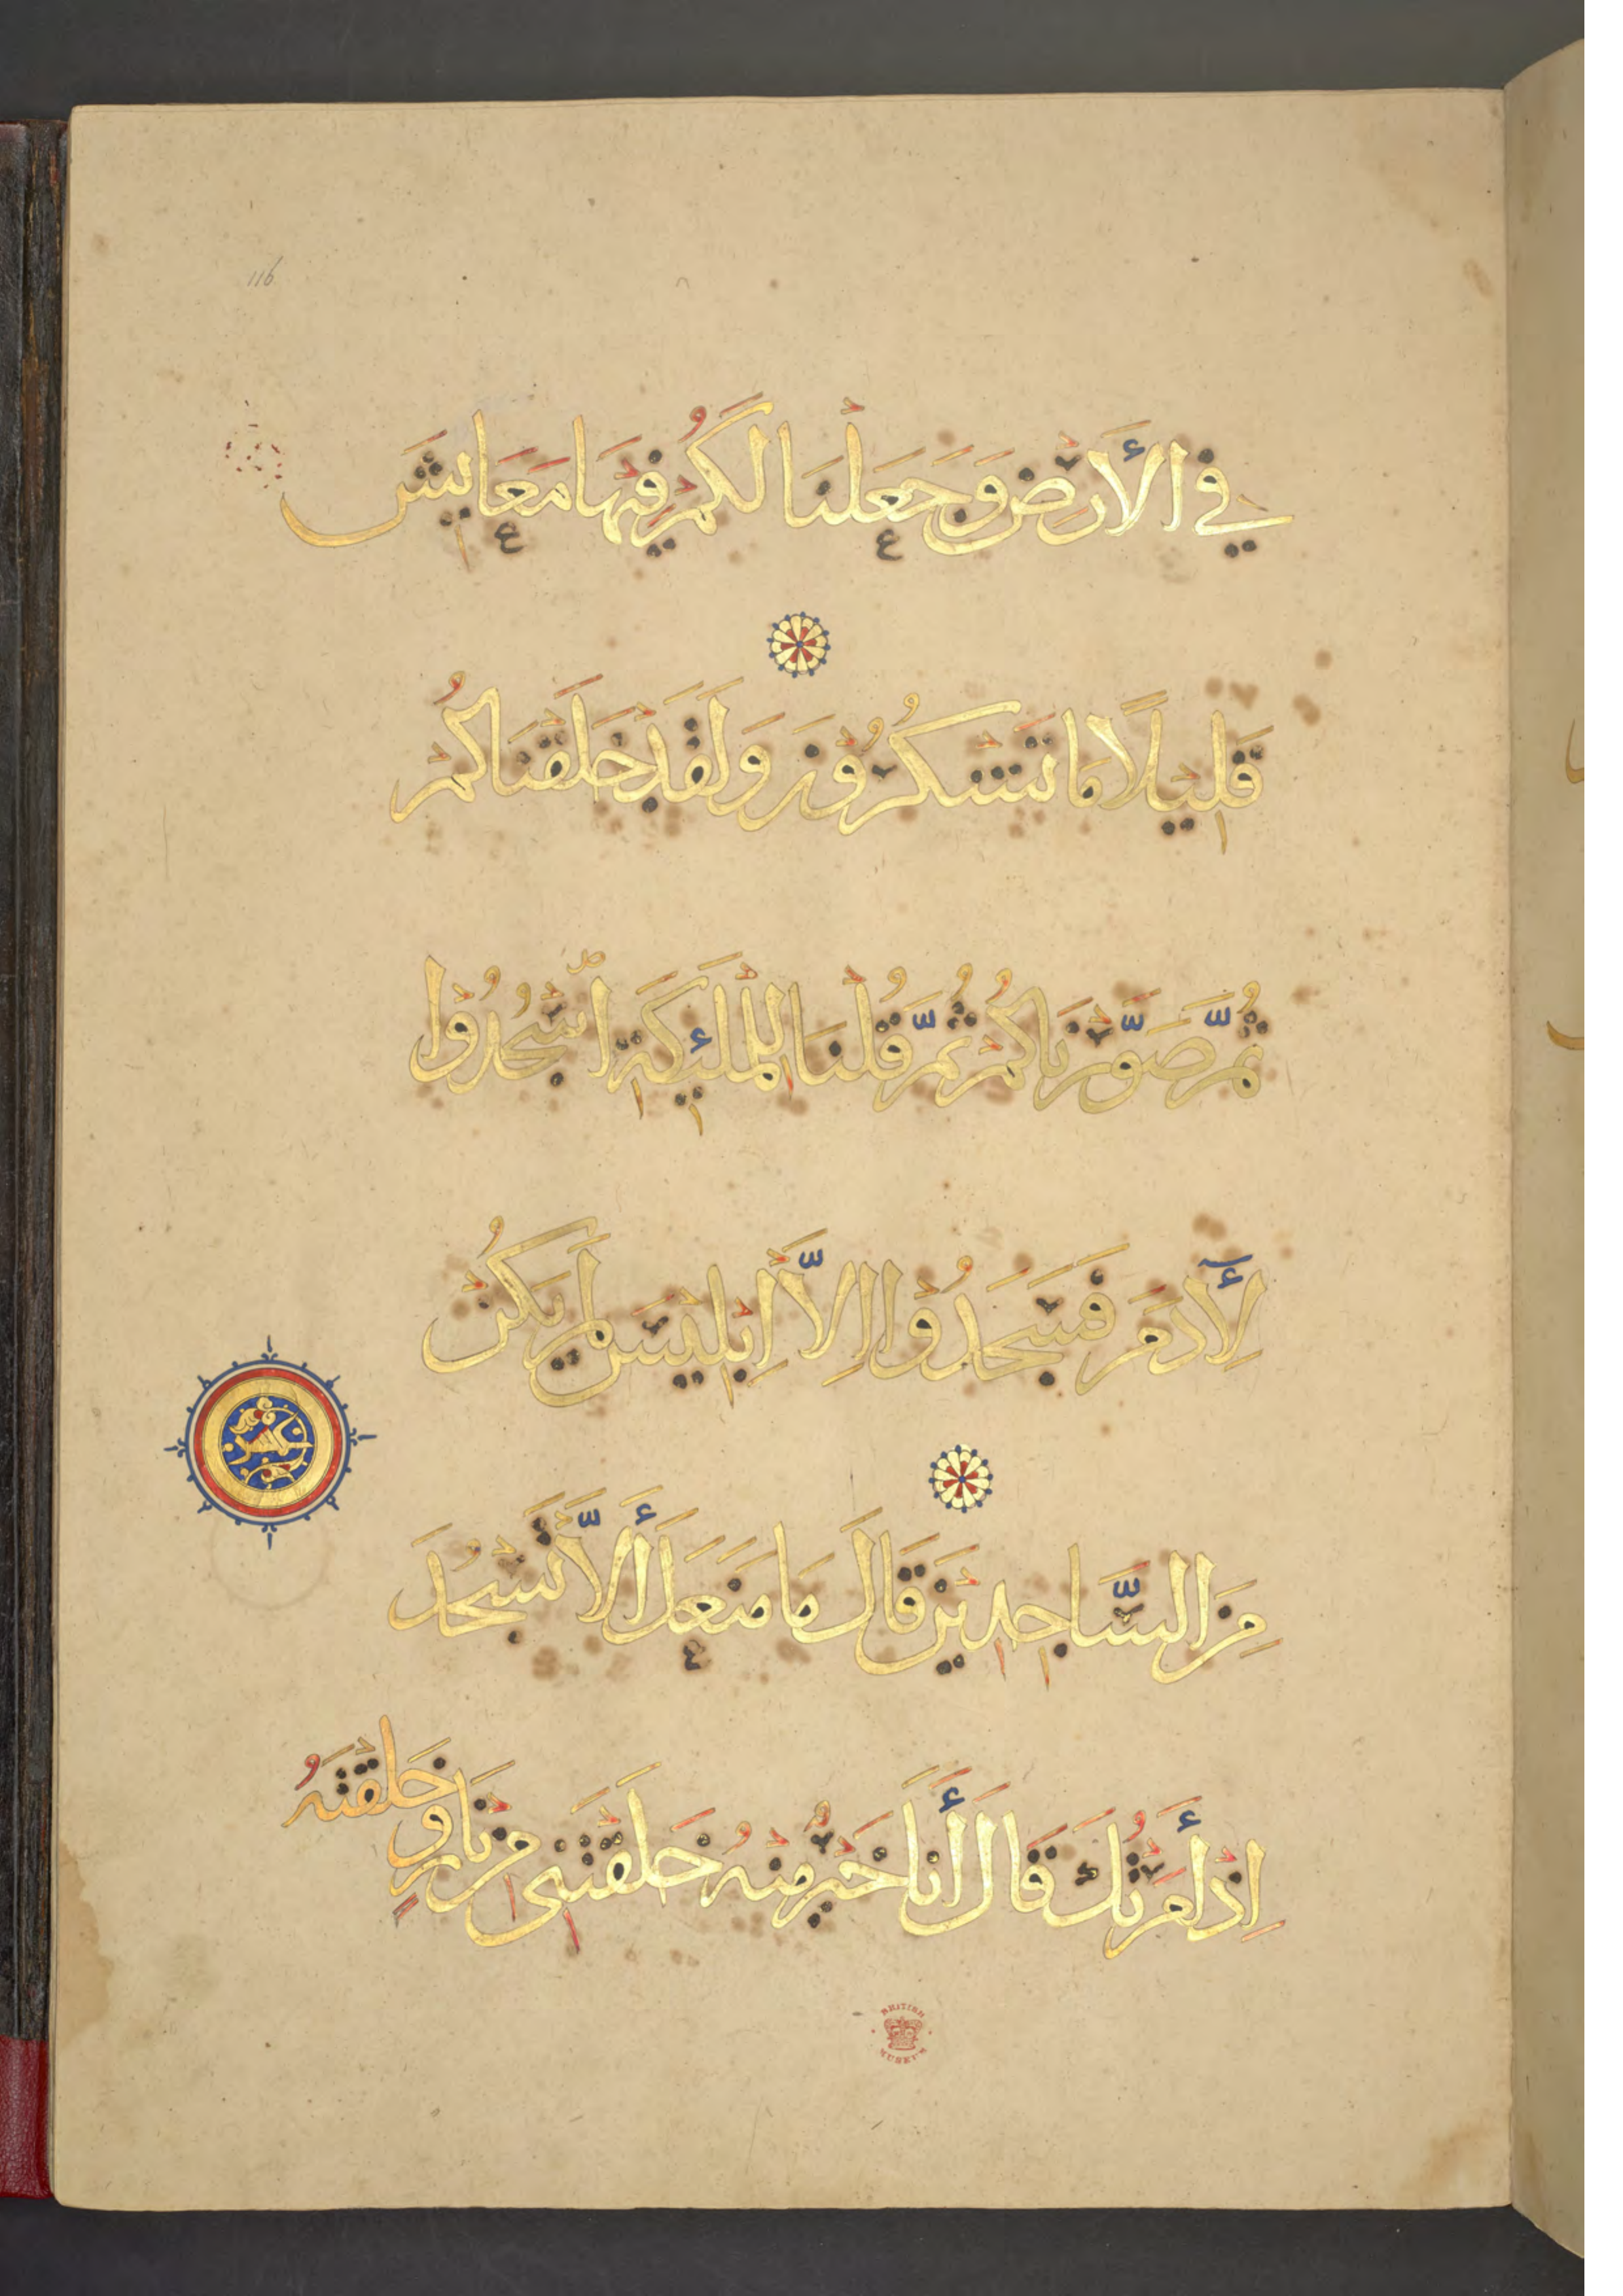 116
في الأَرْضِ وَجَعَلْنَا لَكُمْ فِيْهَا مَعَايِشَ
قَلِيْلًا مَا تَشْكُرُوْنَ وَلَقَدْ خَلَقْنَاكُمْ
ثُمَّ صَوَّرْنَاكُمْ ثُمَّ قُلْنَا لِلْمَلٰئِكَةِ اسْجُدُوْا
لِأَدَمَ فَسَجَدُوْا اِلَّا اِبْلِيْسَ لَمْ يَكُنْ
مِنَ السَّاجِدِيْنَ قَالَ مَا مَنَعَكَ أَلَّا تَسْجُدَ
اِذْ أَمَرْتُكَ قَالَ أَنَا خَيْرٌ مِنْهُ خَلَقْتَنِي مِنْ نَارٍ وَخَلَقْتَهُ
BRITISH MUSEUM